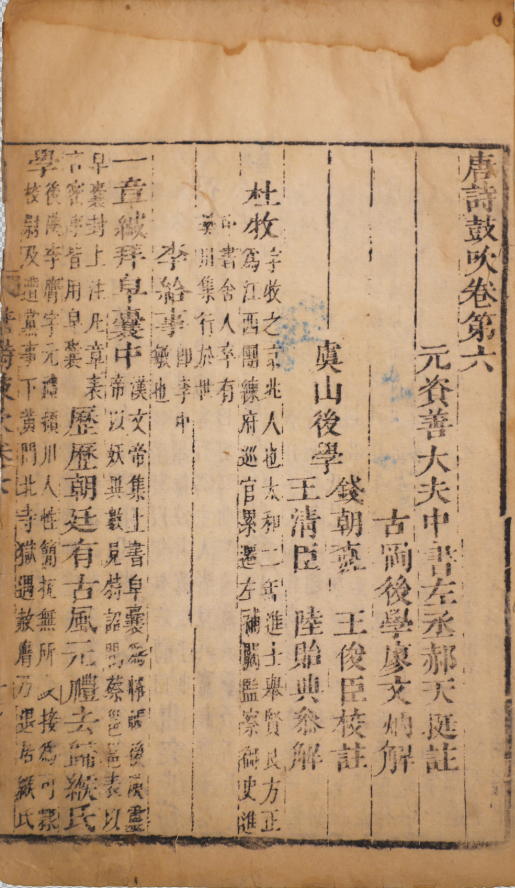 唐詩鼓吹卷第六
元資善大夫中書左丞郝天挺註
古岡後學廖文炳解
錢朝鼒 王俊臣校註
虞山後學
王清臣 陸貽典參解
杜牧
字牧之京兆人也太和二年進士舉賢良方正
爲江西團練府巡官累遷左補闕監察御史進
中書舍人卒有
樊川集行於世
李給事
即李中
敏也
一章緘拜皁囊中
漢文帝集上書皁囊爲帷帳後漢靈
帝以妖異數見特詔問蔡邕邕表以
皁囊封上注凡章表
言密事皆用皁囊
歷歷朝廷有古風元禮去歸緱氏
學
後漢李膺字元禮潁川人性簡抗無所交接爲司隸
校尉及遭黨事下黃門北寺獄遇赦膺乃還居緱氏